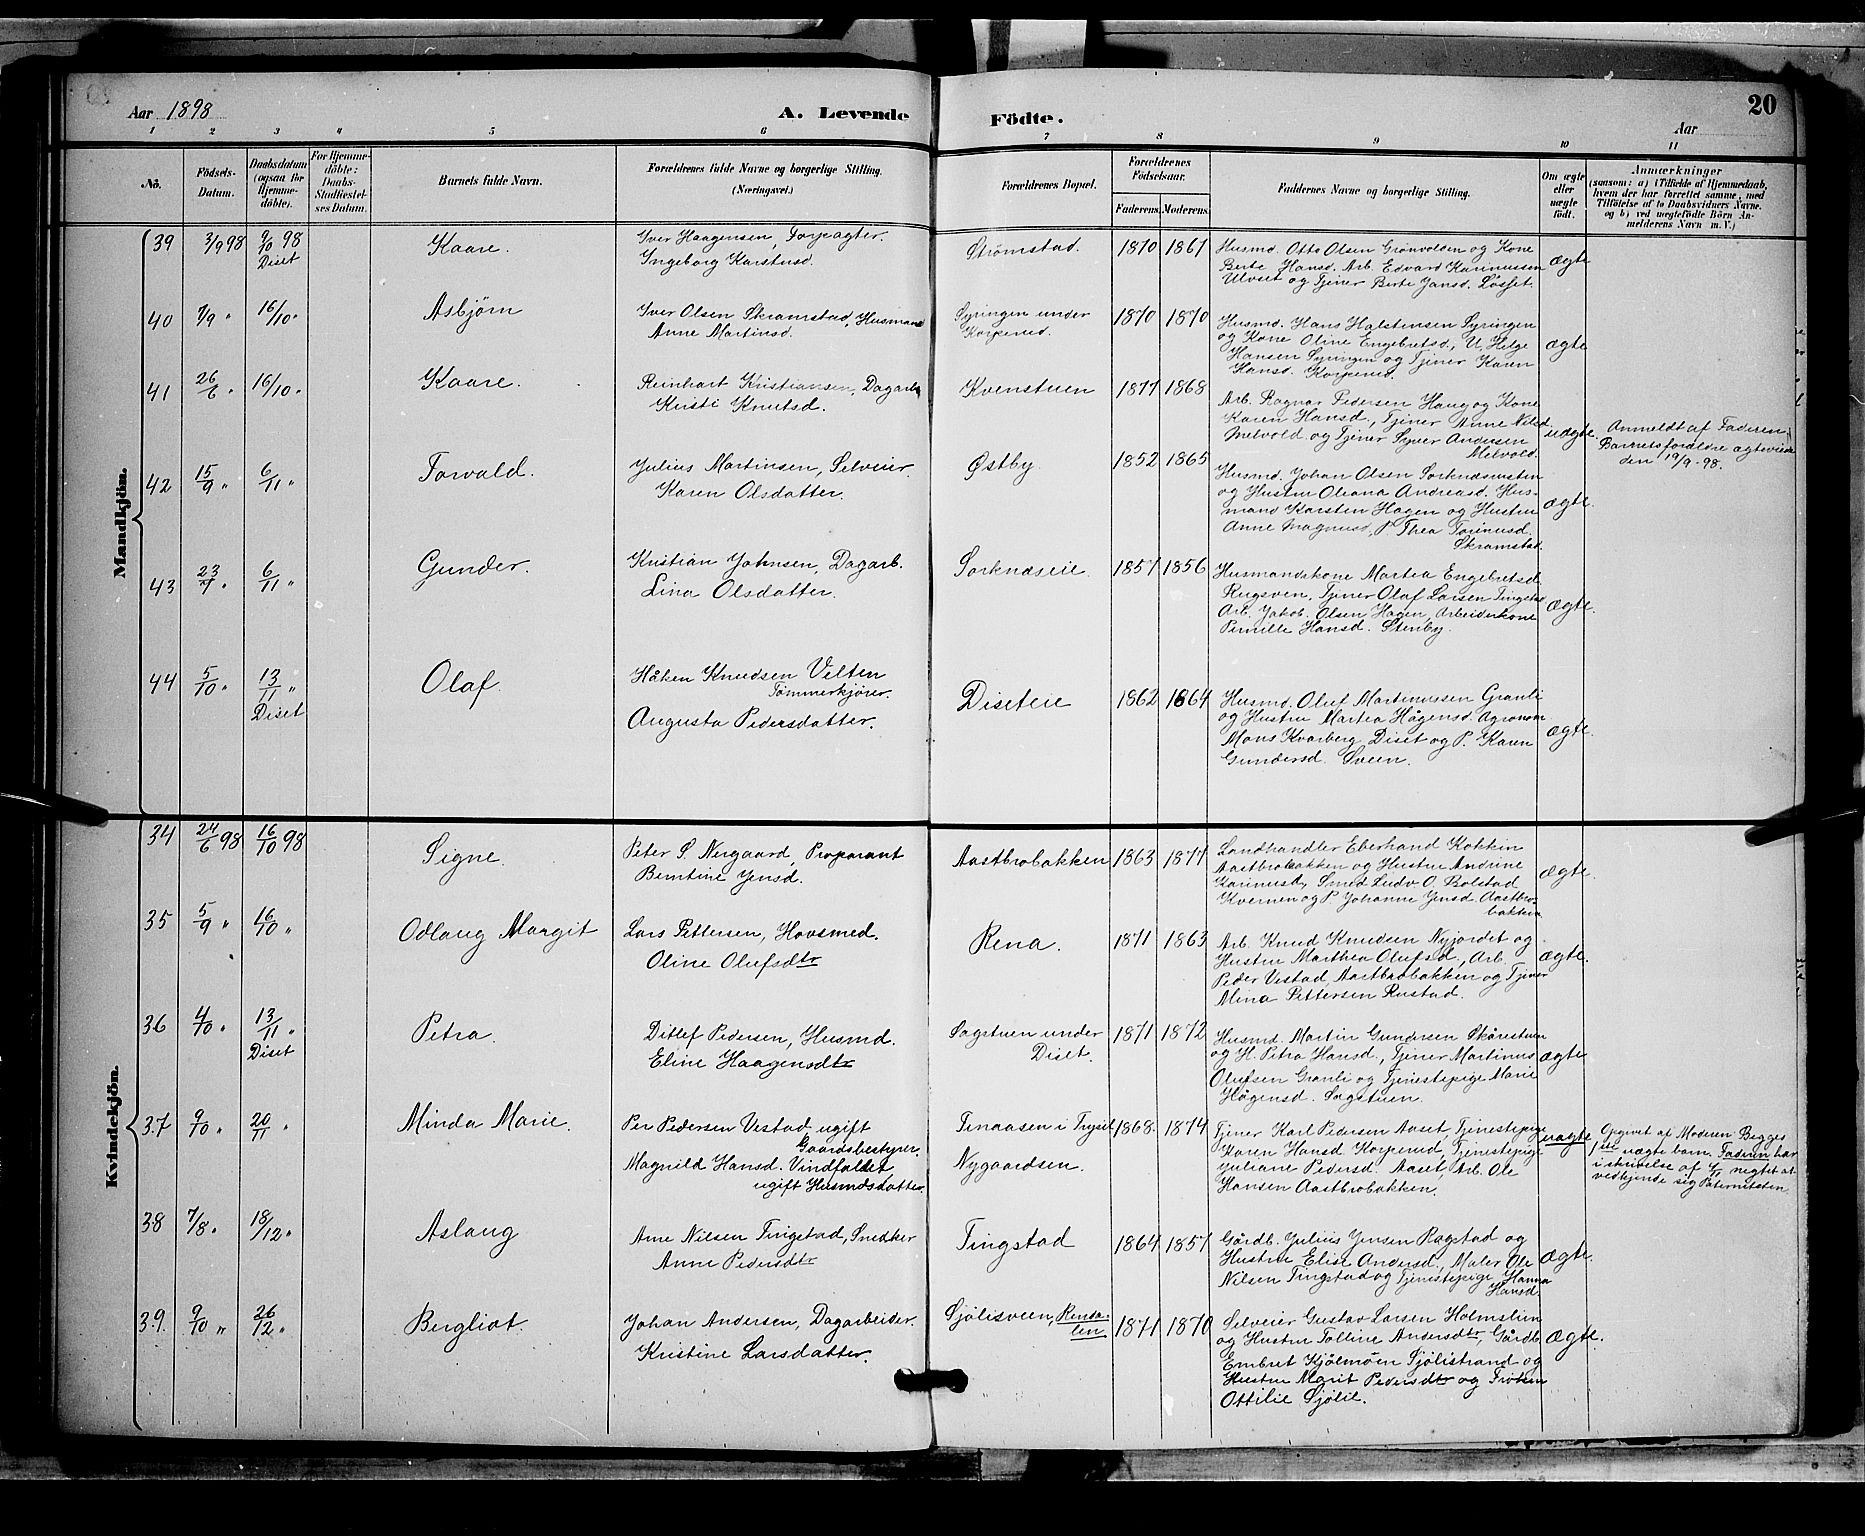 Aar 1898
A. Levende Födte.
Aar
20
1 2 3 4 5 6 7 8 9 10 11
No.
Födsels-Datum.
Daabsdatum (ogsaa for Hjemme-döbte).
For Hjemme-döbte: Daabs-Stadfæstel-ses Datum.
Barnets fulde Navn.
Forældrenes fulde Navne og borgerlige Stilling. (Næringsvei.)
Forældrenes Bopæl.
Forældrenes Födselsaar.
Faderens. Moderens.
Faddernes Navne og borgerlige Stilling.
Om ægte eller uægte födt.
Anmærkninger
(saasom: a) i Tilfælde af Hjemmedaab, hvem der har forrettet samme, med Tilföielse af to Daabsvidners Navne, og b) ved uegtefödte Börn An-melderens Navn m. V.)
Mandkjön.
39 3/9 98 9/10 98 Diset Kaare.
Iver Haagensen, Forpagter.
Ingeborg Karstensd.
Strømstad. 1870 1867
Husmd. Otto Olsen Grønvolden og Kone
Berte Hansd. Arb. Edvard Karinussen
Ulvset og Tjener Berte Jansd. Løsset.
ægte
40 7/9 " 16/10 " Asbjørn
Iver Olsen Skramstad, Husmand
Anne Martinsd.
Syringen under
Korperud.
1870 1870
Husmd. Hans Halstensen Syringen
og Kone Oline Engebretsd., U. Helge
Hansen Syringen og Tjener Karen
Hansd. Korperud.
ægte
41 26/6 " 16/10 " Kaare.
Reinhart Kristiansen, Dagarb.
Kristi Knutsd.
Kvenstuen 1877 1868
Arb. Ragnar Pedersen Haug og Kone
Karen Hansd., Tjener Anne Nilsd.
Melvold og Tjener Syver Andersen
Melvold.
uægte.
Anmeldt af Faderen.
Barnets forældre ægteviede
den 19/9-98.
42 15/9 " 6/11 " Torvald.
Julius Martinsen, Selveier
Karen Olsdatter.
Østby. 1852 1865
Husmd. Johan Olsen Sorknæsmsten
og Hustru Oleana Andreasd. Hus-
mand Karsten Hagen og Hustru
Anne Magnusd, P. Thea Torinusd.
Skramstad.
ægte.
43 23/9 " 6/11 " Gunder.
Kristian Johnsen, Dagarb.
Lina Olsdatter.
Sorknæseie. 1857 1856
Husmandskone Martea Engebretsd.
Rugsven, Tjener Olaf Larsen Tingstad
Arb. Jakob Olsen Hagen, Arbeiderkone
Pernille Hansd. Stenby.
ægte.
44 5/10 " 13/11 " Diset Olaf.
Håken Knudsen Velten
Tømmerkjører.
Augusta Pedersdatter.
Diseteie 1862 1864
Husmd. Oluf Martinussen Granli
og Hustru Martea Hågensd. Agronom
Mons Kvarberg Diset og P. Karen
Gundersd. Sveen.
ægte.
Kvindekjön.
34 24/6 98 16/10 98 Signe.
Peter S. Nergaard, Præparant
Berntine Jensd.
Aastbrobakken 1863 1877
Landhandler Eberhand Kokkin
Aastbrobakken og Hustru Andrine
Karinusd, Smed Ludv O. Bolstad
Kvernen og P. Johanne Jensd. Aastbro-
bakken
ægte.
35 5/9 " 16/10 " Odlaug Margit
Lars Pettersen, Hovsmed.
Oline Olufsdtr
Rena. 1871 1863
Arb. Knud Knudsen Nyjordet og
Hustru Marthea Olufsd., Arb.
Peder Vestad, Aastbrobakken og Tjener
Alina Pettersen Rustad.
ægte.
36 4/10 " 13/11 " Diset Petra.
Ditlef Pedersen, Husmd.
Eline Haagensdtr
Sagstuen under
Diset.
1871 1872
Husmd. Martin Gundersen Skårestuen
og H. Petra Hansd., Tjener Martinus
Olufsen Granli og Tjenestepige Marie
Hågensd. Sagstuen.
ægte
37 9/10 " 20/11 " Minda Marie.
Per Pedersen Vestad, ugift
Gaardsbestyrer.
Magnild Hansd. Vindfaldet,
ugift Husmdsdatter.
Tenaasen i Trysil
Nygaardsen.
1868. 1874
Tjener Karl Pedersen Aaset, Tjenestepige
Karen Hansd Korperud, Tjenestepige
Juliane Pedersd. Aaset, Arb. Ole
Hansen Aastbrobakken.
uægte
Opgivet af Moderen. Begges
1ste uægte barn. Faderen har
i skrivelse af 4/11 negtet at
vedkjende sig Paterniteten.
38 7/8 " 18/12 " Aslaug
Arne Nilsen Tingstad, Snedker
Anne Pedersdtr
Tingstad 1864 1857
Gårdb. Julius Jensen Ragstad og
Hustru Elise Andersd., Maler Ole
Nilsen Tingstad og Tjenestepige Hanna
Hansd.
ægte.
39. 9/10 " 26/12 " Bergliot.
Johan Andersen, Dagarbeider.
Kristine Larsdatter.
Sjölisveen, Renda-
len.
1871 1870
Selveier Gustav Larsen Holmslien
og Hustru Tolline Andersdtr, Gårdb.
Embret Kjølmoen Sjölistrand og
Hustru Marit Pedersdtr og Frøken
Ottilie Sjölie.
ægte.